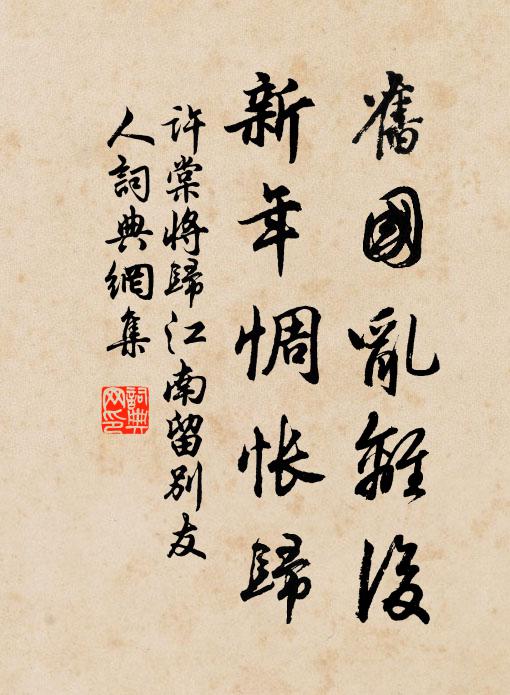 舊國亂離後
新年惆悵歸
许棠將歸江南留别友
人詞典網集
詞典
网印